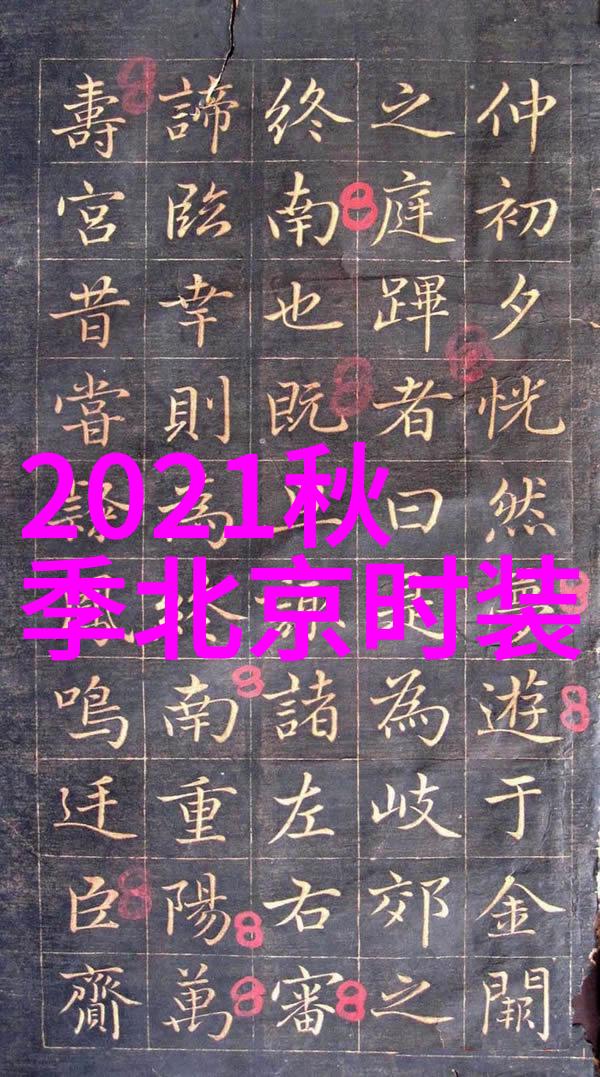 仲初夕恍然遊于金闕
之庭蹕者曰是為岐郊之
終南也既諸左右審
諦臨幸則為終南重陽萬
壽宮昔嘗鳴廷臣齎
2021秋
季北京时装